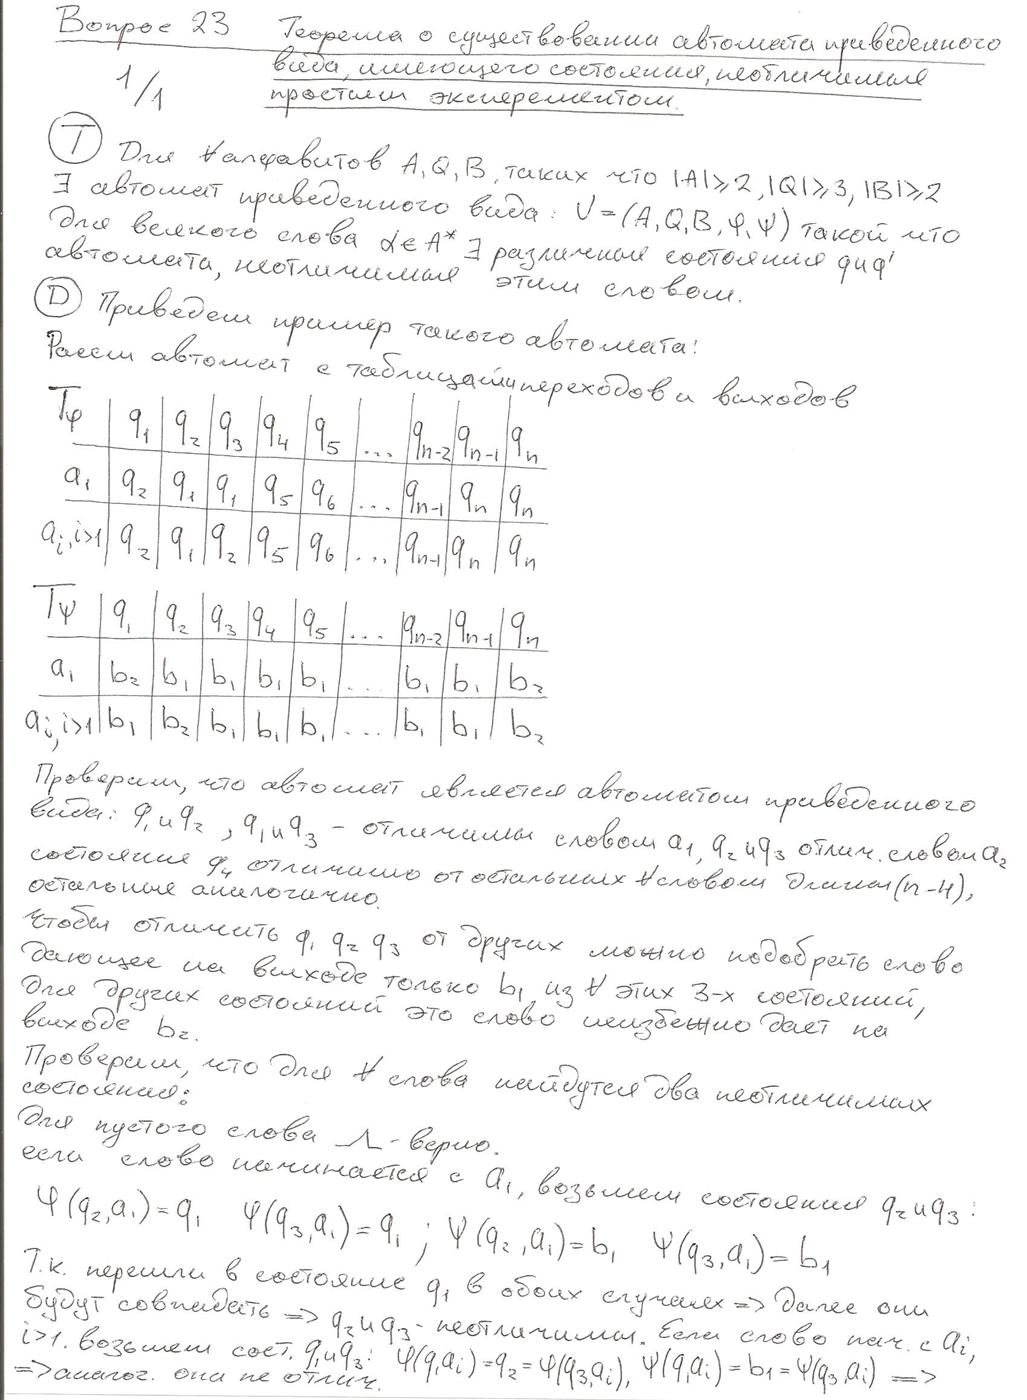 Вопрос 23 Теорема о существовании автомата приведенного
вида, имеющего состояния, неотличимые
1/1 простым экспериментом.
Т Для ∀ алфавитов A, Q, B, таких что |A|≥2, |Q|≥3, |B|≥2
∃ автомат приведенного вида: V=(A,Q,B,φ,ψ) такой что
для всякого слова α∈A* ∃ различные состояния q и q'
автомата, неотличимые этим словом.
D Приведем пример такого автомата:
Рассм автомат с таблицами переходов и выходов
Tφ | q₁ | q₂ | q₃ | q₄ | q₅ | ... | qₙ₋₂ | qₙ₋₁ | qₙ
a₁ | q₂ | q₁ | q₁ | q₅ | q₆ | ... | qₙ₋₁ | qₙ | qₙ
aᵢ, i>1 | q₂ | q₁ | q₂ | q₅ | q₆ | ... | qₙ₋₁ | qₙ | qₙ
Tψ | q₁ | q₂ | q₃ | q₄ | q₅ | ... | qₙ₋₂ | qₙ₋₁ | qₙ
a₁ | b₂ | b₁ | b₁ | b₁ | b₁ | ... | b₁ | b₁ | b₂
aᵢ, i>1 | b₁ | b₂ | b₁ | b₁ | b₁ | ... | b₁ | b₁ | b₂
Проверим, что автомат является автоматом приведенного
вида: q₁ и q₂, q₁ и q₃ - отличимы словом a₁, q₂ и q₃ отлич. словом a₂
состояние q₄ отличимо от остальных ∀ словом длины (n-4),
остальные аналогично.
Чтобы отличить q₁ q₂ q₃ от других можно подобрать слово
дающее на выходе только b₁ из ∀ этих 3-х состояний,
для других состояний это слово неизбежно дает на
выходе b₂.
Проверим, что для ∀ слова найдутся два неотличимых
состояния:
Для пустого слова Λ - верно.
если слово начинается с a₁, возьмем состояния q₂ и q₃:
φ(q₂,a₁)=q₁ φ(q₃,a₁)=q₁; ψ(q₂,a₁)=b₁ ψ(q₃,a₁)=b₁
Т.к. перешли в состояние q₁ в обоих случаях => далее они
будут совпадать => q₂ и q₃ - неотличимы. Если слово нач. с aᵢ,
i>1. возьмем сост. q₁ и q₃: φ(q₁,aᵢ)=q₂=φ(q₃,aᵢ), ψ(q₁,aᵢ)=b₁=ψ(q₃,aᵢ) =>
=> аналог. они не отлич.